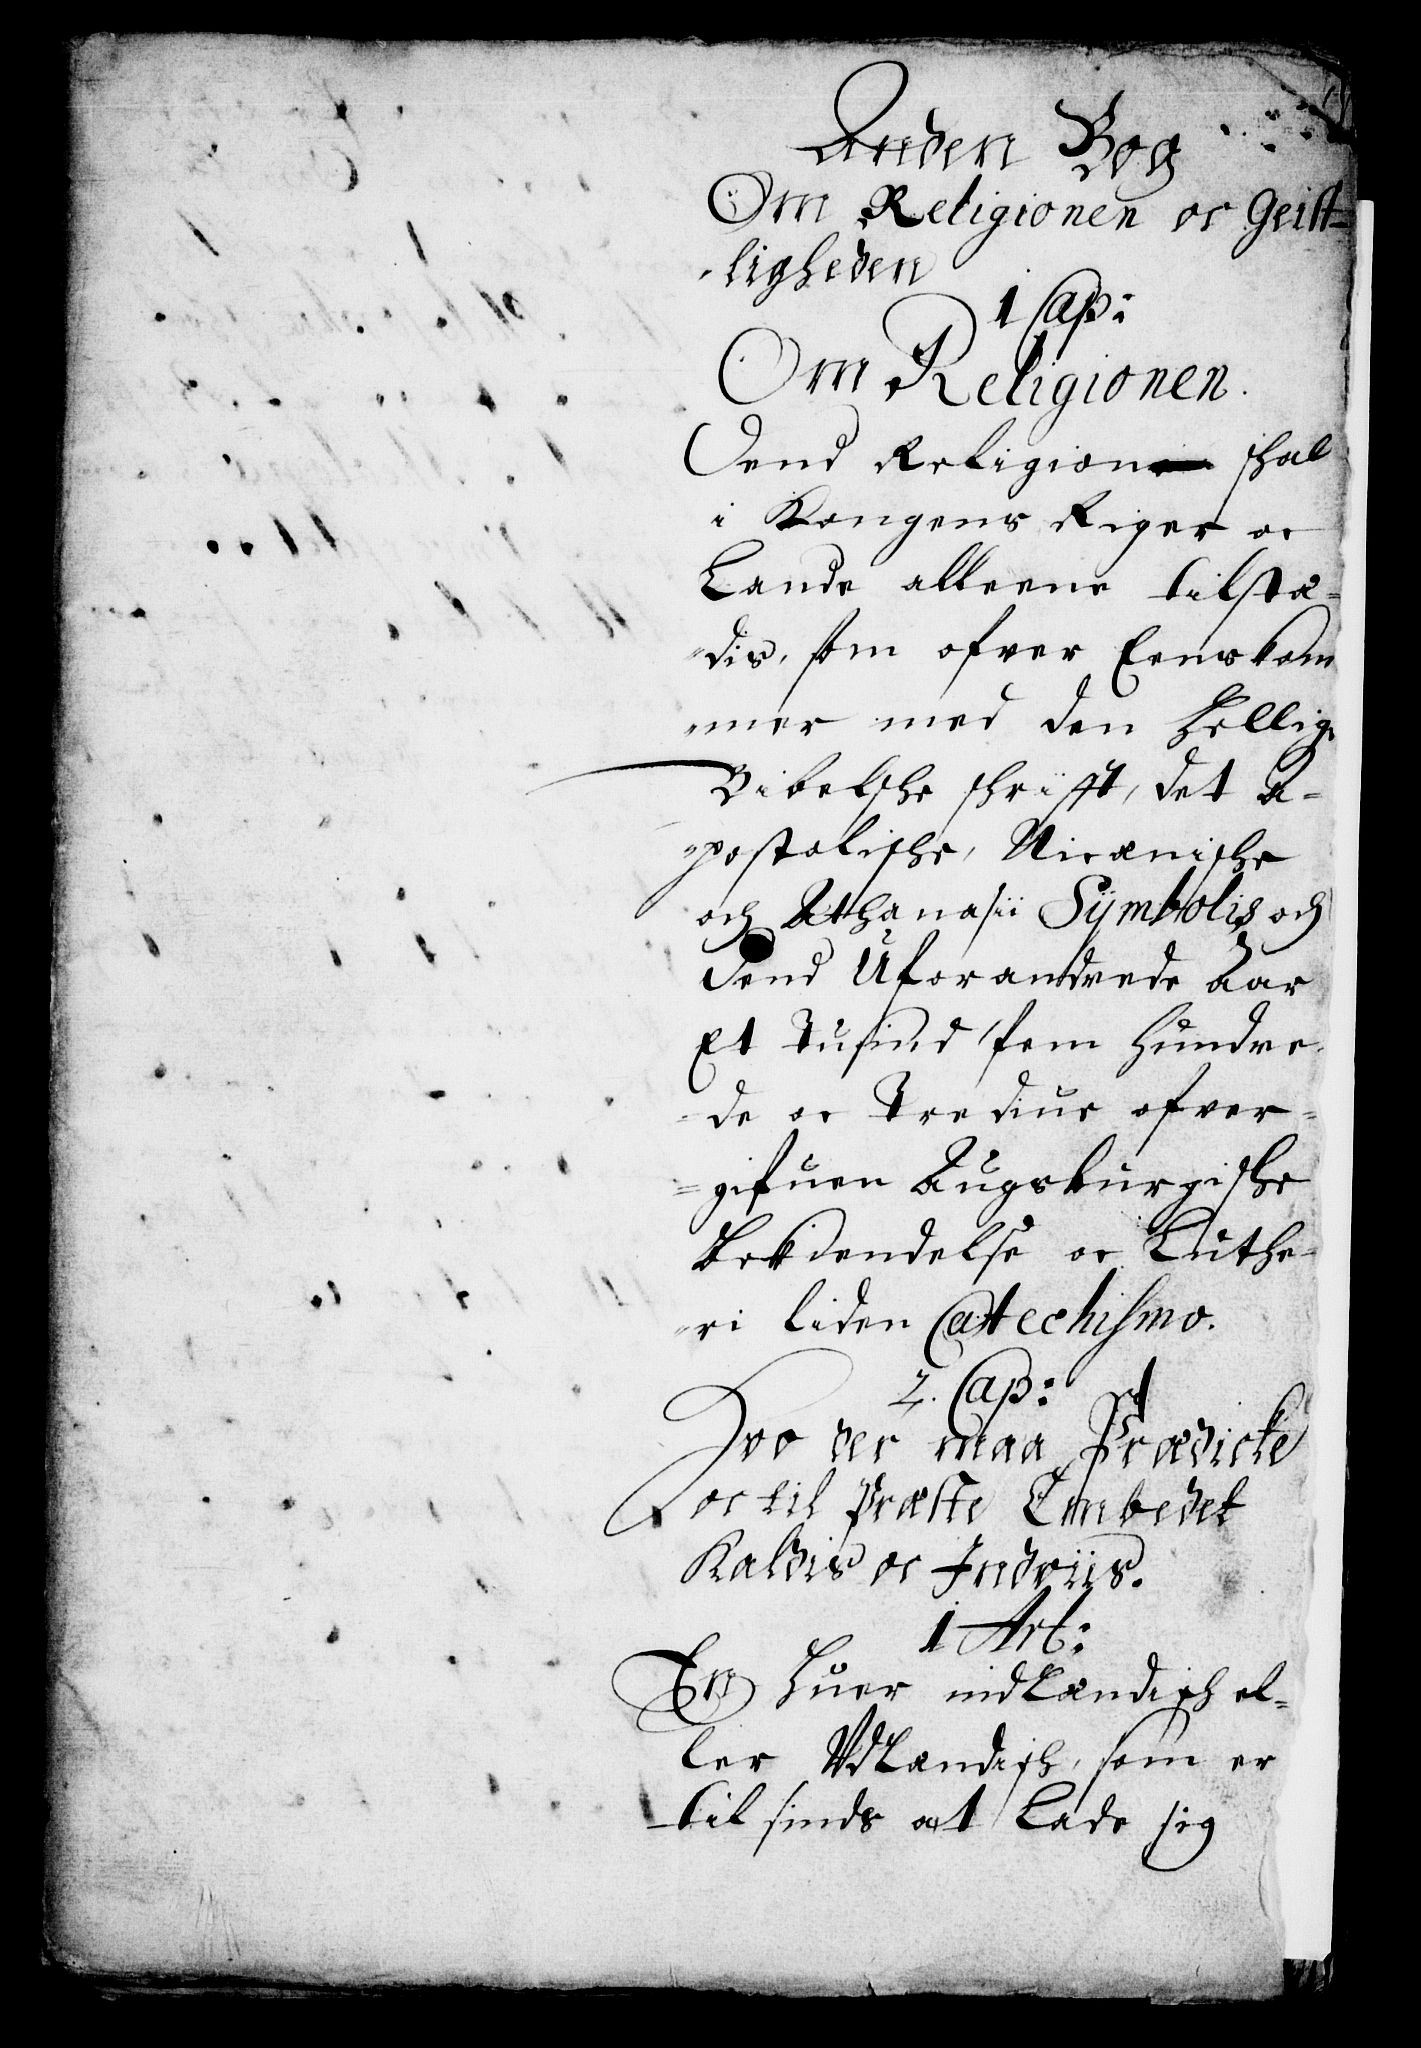 Anden Bog
Om Religionen oc Geist-
-ligheden
1 Cap:
Om Religionen.
Dend Religion skal
i Kongens Riger oc
Lande alleene tilstæ-
-dis, som ofver Eenskom
-mer med den hellige
Bibelske skrifft, det A-
-postoliske, Nicæniske
och Athanasii Symbolis och
Dend Uforandrede Aar
Et Tusind fem Hundre-
-de oc Trediue ofver-
-gifuen Augsburgiske
Bekiendelse oc Luthe-
-ri liden Catechismo.
2. Cap:
Hvo der maa Prædicke
oc til Præste Embedet
Kaldis oc Indviis.
1 Art:
En huer indlændisk el-
ler Vdlændisk, som er
til sinds at Lade sig